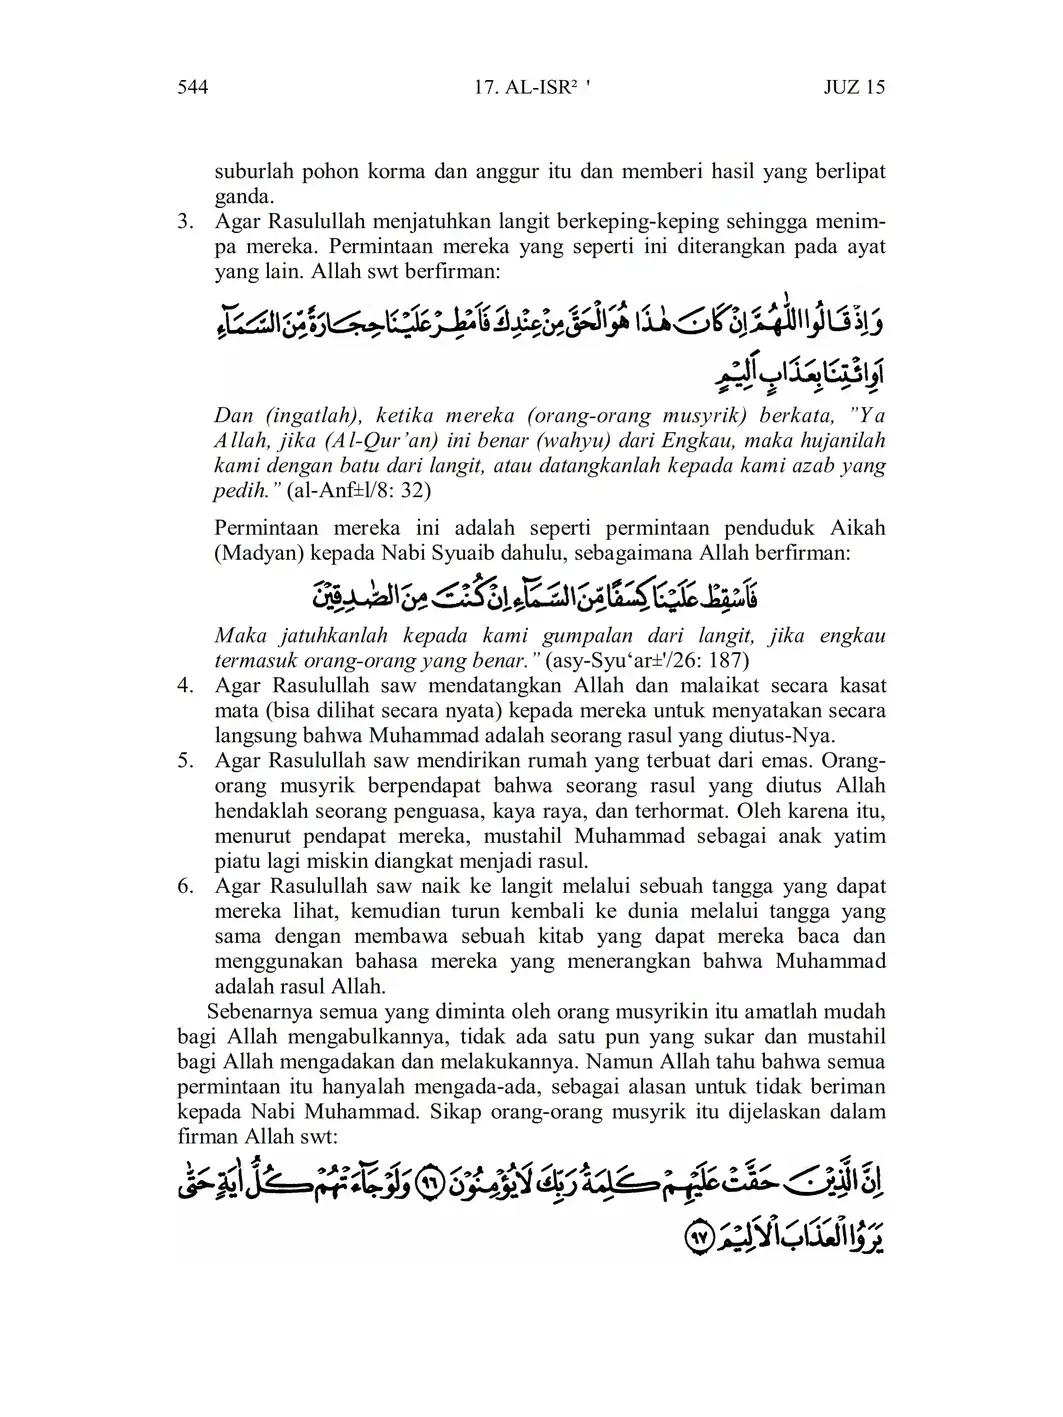 544 17. AL-ISR² ' JUZ 15
suburlah pohon korma dan anggur itu dan memberi hasil yang berlipat
ganda.
3. Agar Rasulullah menjatuhkan langit berkeping-keping sehingga menim-
pa mereka. Permintaan mereka yang seperti ini diterangkan pada ayat
yang lain. Allah swt berfirman:
وَاِذْ قَالُوا اللّٰهُمَّ اِنْ كَانَ هٰذَا هُوَ الْحَقَّ مِنْ عِنْدِكَ فَاَمْطِرْ عَلَيْنَا حِجَارَةً مِّنَ السَّمَاۤءِ
اَوِ ائْتِنَا بِعَذَابٍ اَلِيْمٍ
Dan (ingatlah), ketika mereka (orang-orang musyrik) berkata, ”Ya
Allah, jika (Al-Qur’an) ini benar (wahyu) dari Engkau, maka hujanilah
kami dengan batu dari langit, atau datangkanlah kepada kami azab yang
pedih.” (al-Anf±l/8: 32)
Permintaan mereka ini adalah seperti permintaan penduduk Aikah
(Madyan) kepada Nabi Syuaib dahulu, sebagaimana Allah berfirman:
فَاَسْقِطْ عَلَيْنَا كِسَفًا مِّنَ السَّمَاۤءِ اِنْ كُنْتَ مِنَ الصّٰدِقِيْنَ
Maka jatuhkanlah kepada kami gumpalan dari langit, jika engkau
termasuk orang-orang yang benar.” (asy-Syu‘ar±'/26: 187)
4. Agar Rasulullah saw mendatangkan Allah dan malaikat secara kasat
mata (bisa dilihat secara nyata) kepada mereka untuk menyatakan secara
langsung bahwa Muhammad adalah seorang rasul yang diutus-Nya.
5. Agar Rasulullah saw mendirikan rumah yang terbuat dari emas. Orang-
orang musyrik berpendapat bahwa seorang rasul yang diutus Allah
hendaklah seorang penguasa, kaya raya, dan terhormat. Oleh karena itu,
menurut pendapat mereka, mustahil Muhammad sebagai anak yatim
piatu lagi miskin diangkat menjadi rasul.
6. Agar Rasulullah saw naik ke langit melalui sebuah tangga yang dapat
mereka lihat, kemudian turun kembali ke dunia melalui tangga yang
sama dengan membawa sebuah kitab yang dapat mereka baca dan
menggunakan bahasa mereka yang menerangkan bahwa Muhammad
adalah rasul Allah.
Sebenarnya semua yang diminta oleh orang musyrikin itu amatlah mudah
bagi Allah mengabulkannya, tidak ada satu pun yang sukar dan mustahil
bagi Allah mengadakan dan melakukannya. Namun Allah tahu bahwa semua
permintaan itu hanyalah mengada-ada, sebagai alasan untuk tidak beriman
kepada Nabi Muhammad. Sikap orang-orang musyrik itu dijelaskan dalam
firman Allah swt:
اِنَّ الَّذِيْنَ حَقَّتْ عَلَيْهِمْ كَلِمَةُ رَبِّكَ لَا يُؤْمِنُوْنَ ٩٦ وَلَوْ جَاۤءَتْهُمْ كُلُّ اٰيَةٍ حَتّٰى
يَرَوُا الْعَذَابَ الْاَلِيْمَ ٩٧